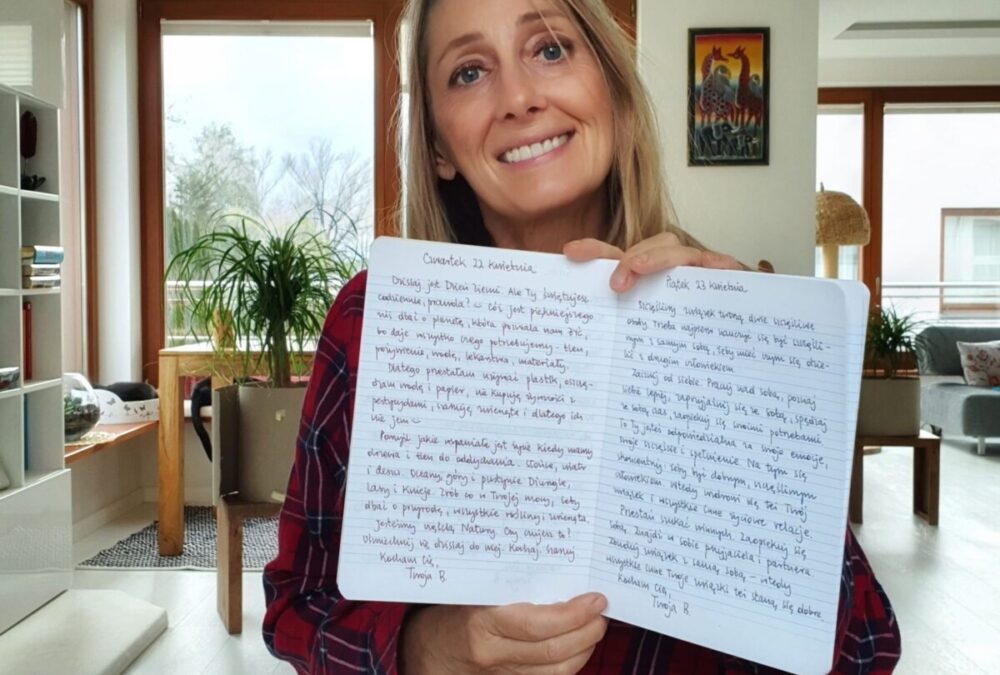 Czwartek 22 kwietnia
Dzisiaj jest Dzień Ziemi. Ale Ty świętujesz
codziennie, prawda? Cóż jest piękniejszego
niż dbać o planetę, która pozwala nam żyć,
bo daje wszystko czego potrzebujemy - tlen,
pożywienie, wodę, lekarstwa, materiały.
Dlatego przestałam używać plastik, oszczę-
dzam wodę i papier, nie kupuję żywności z
pestycydami, szanuję zwierzęta i dlatego ich
nie jem
Pomyśl jakie wspaniałe jest życie kiedy mamy
drzewa i tlen do oddychania. Słońce, wiatr
i deszcz. Oceany, góry i pustynie. Dżungle,
lasy i knieje. Zrób co w Twojej mocy, żeby
dbać o przyrodę, wszystkie rośliny i zwierzęta.
Jesteśmy częścią Natury. Czy czujesz to?
Uśmiechnij się dzisiaj do niej. Kochaj. Szanuj
Kocham Cię,
Twoja B.
Piątek 23 kwietnia
Szczęśliwy związek tworzą dwie szczęśliwe
osoby. Trzeba najpierw nauczyć się być szczęśli-
wym z samym sobą, żeby mieć czym się dzie-
lić z drugim człowiekiem.
Zacznij od siebie. Pracuj nad sobą, poznaj
siebie lepiej, zaprzyjaźnij się ze sobą, spędzaj
ze sobą czas, zaopiekuj się swoimi potrzebami
To Ty jesteś odpowiedzialna za swoje emocje,
swoje szczęście i spełnienie. Na tym się
skoncentruj: żeby być dobrym, szczęśliwym
człowiekiem. Wtedy uzdrowi się też Twój
związek i wszystkie inne życiowe relacje.
Przestań szukać winnych. Zaopiekuj się
sobą. Znajdź w sobie przyjaciela i partnera.
Zbuduj związek z samą sobą - wtedy
wszystkie inne Twoje związki też staną się dobre.
Kocham Cię,
Twoja B.